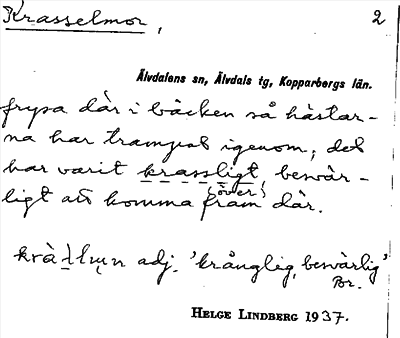 Krasselmor, 2
Älvdalens sn, Älvdals tg, Kopparbergs län.
frysa där i bäcken så hästar-
na har trampat igenom; det
har varit krassligt, besvär-
(över)
ligt att komma fram där.
adj. 'krånglig, besvärlig'
Br.
HELGE LINDBERG 1937.